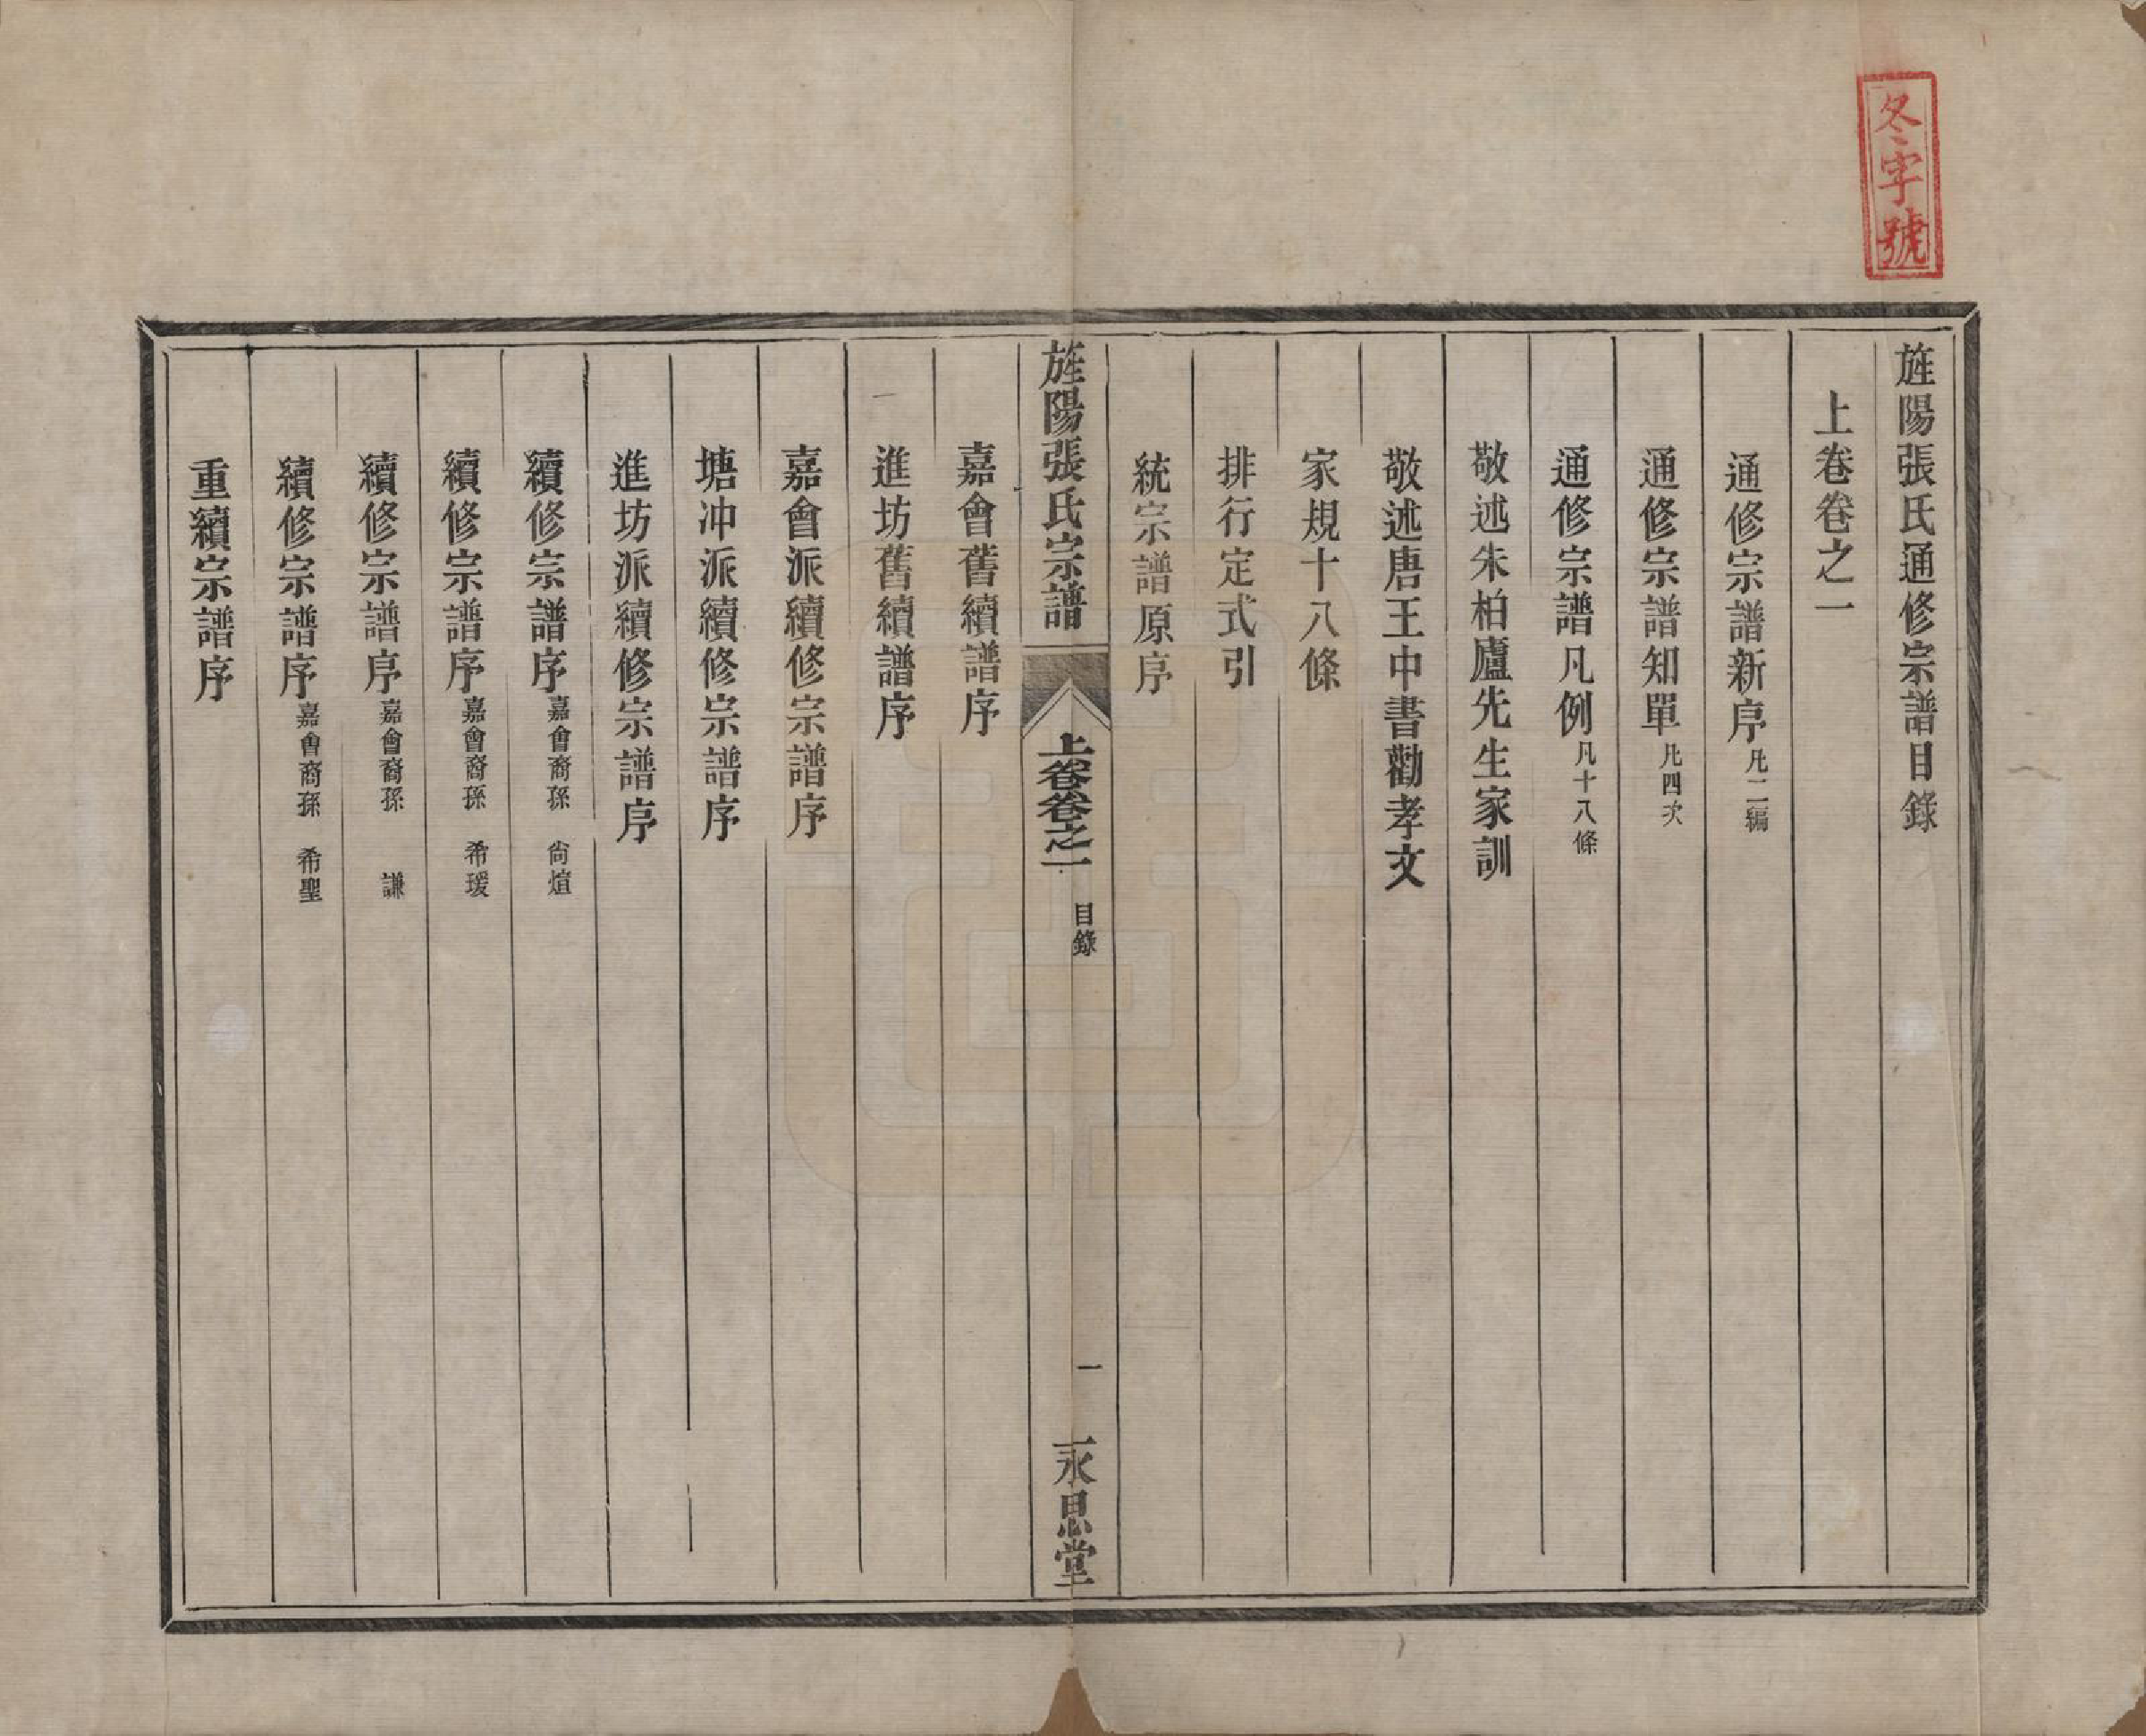 冬字號
旌陽張氏通修宗譜目錄
上卷卷之一
通修宗譜新序凡二編
通修宗譜知單凡四次
通修宗譜凡例凡十八條
敬述朱柏廬先生家訓
敬述唐王中書勸孝文
家規十八條
排行定式引
統宗譜原序
旌陽張氏宗譜 上卷卷之一 目錄 一 永思堂
嘉會舊續譜序
進坊舊續譜序
嘉會派續修宗譜序
塘冲派續修宗譜序
進坊派續修宗譜序
續修宗譜序嘉會裔孫 尙煊
續修宗譜序嘉會裔孫 希瑗
續修宗譜序嘉會裔孫 謙
續修宗譜序嘉會裔孫 希聖
重續宗譜序